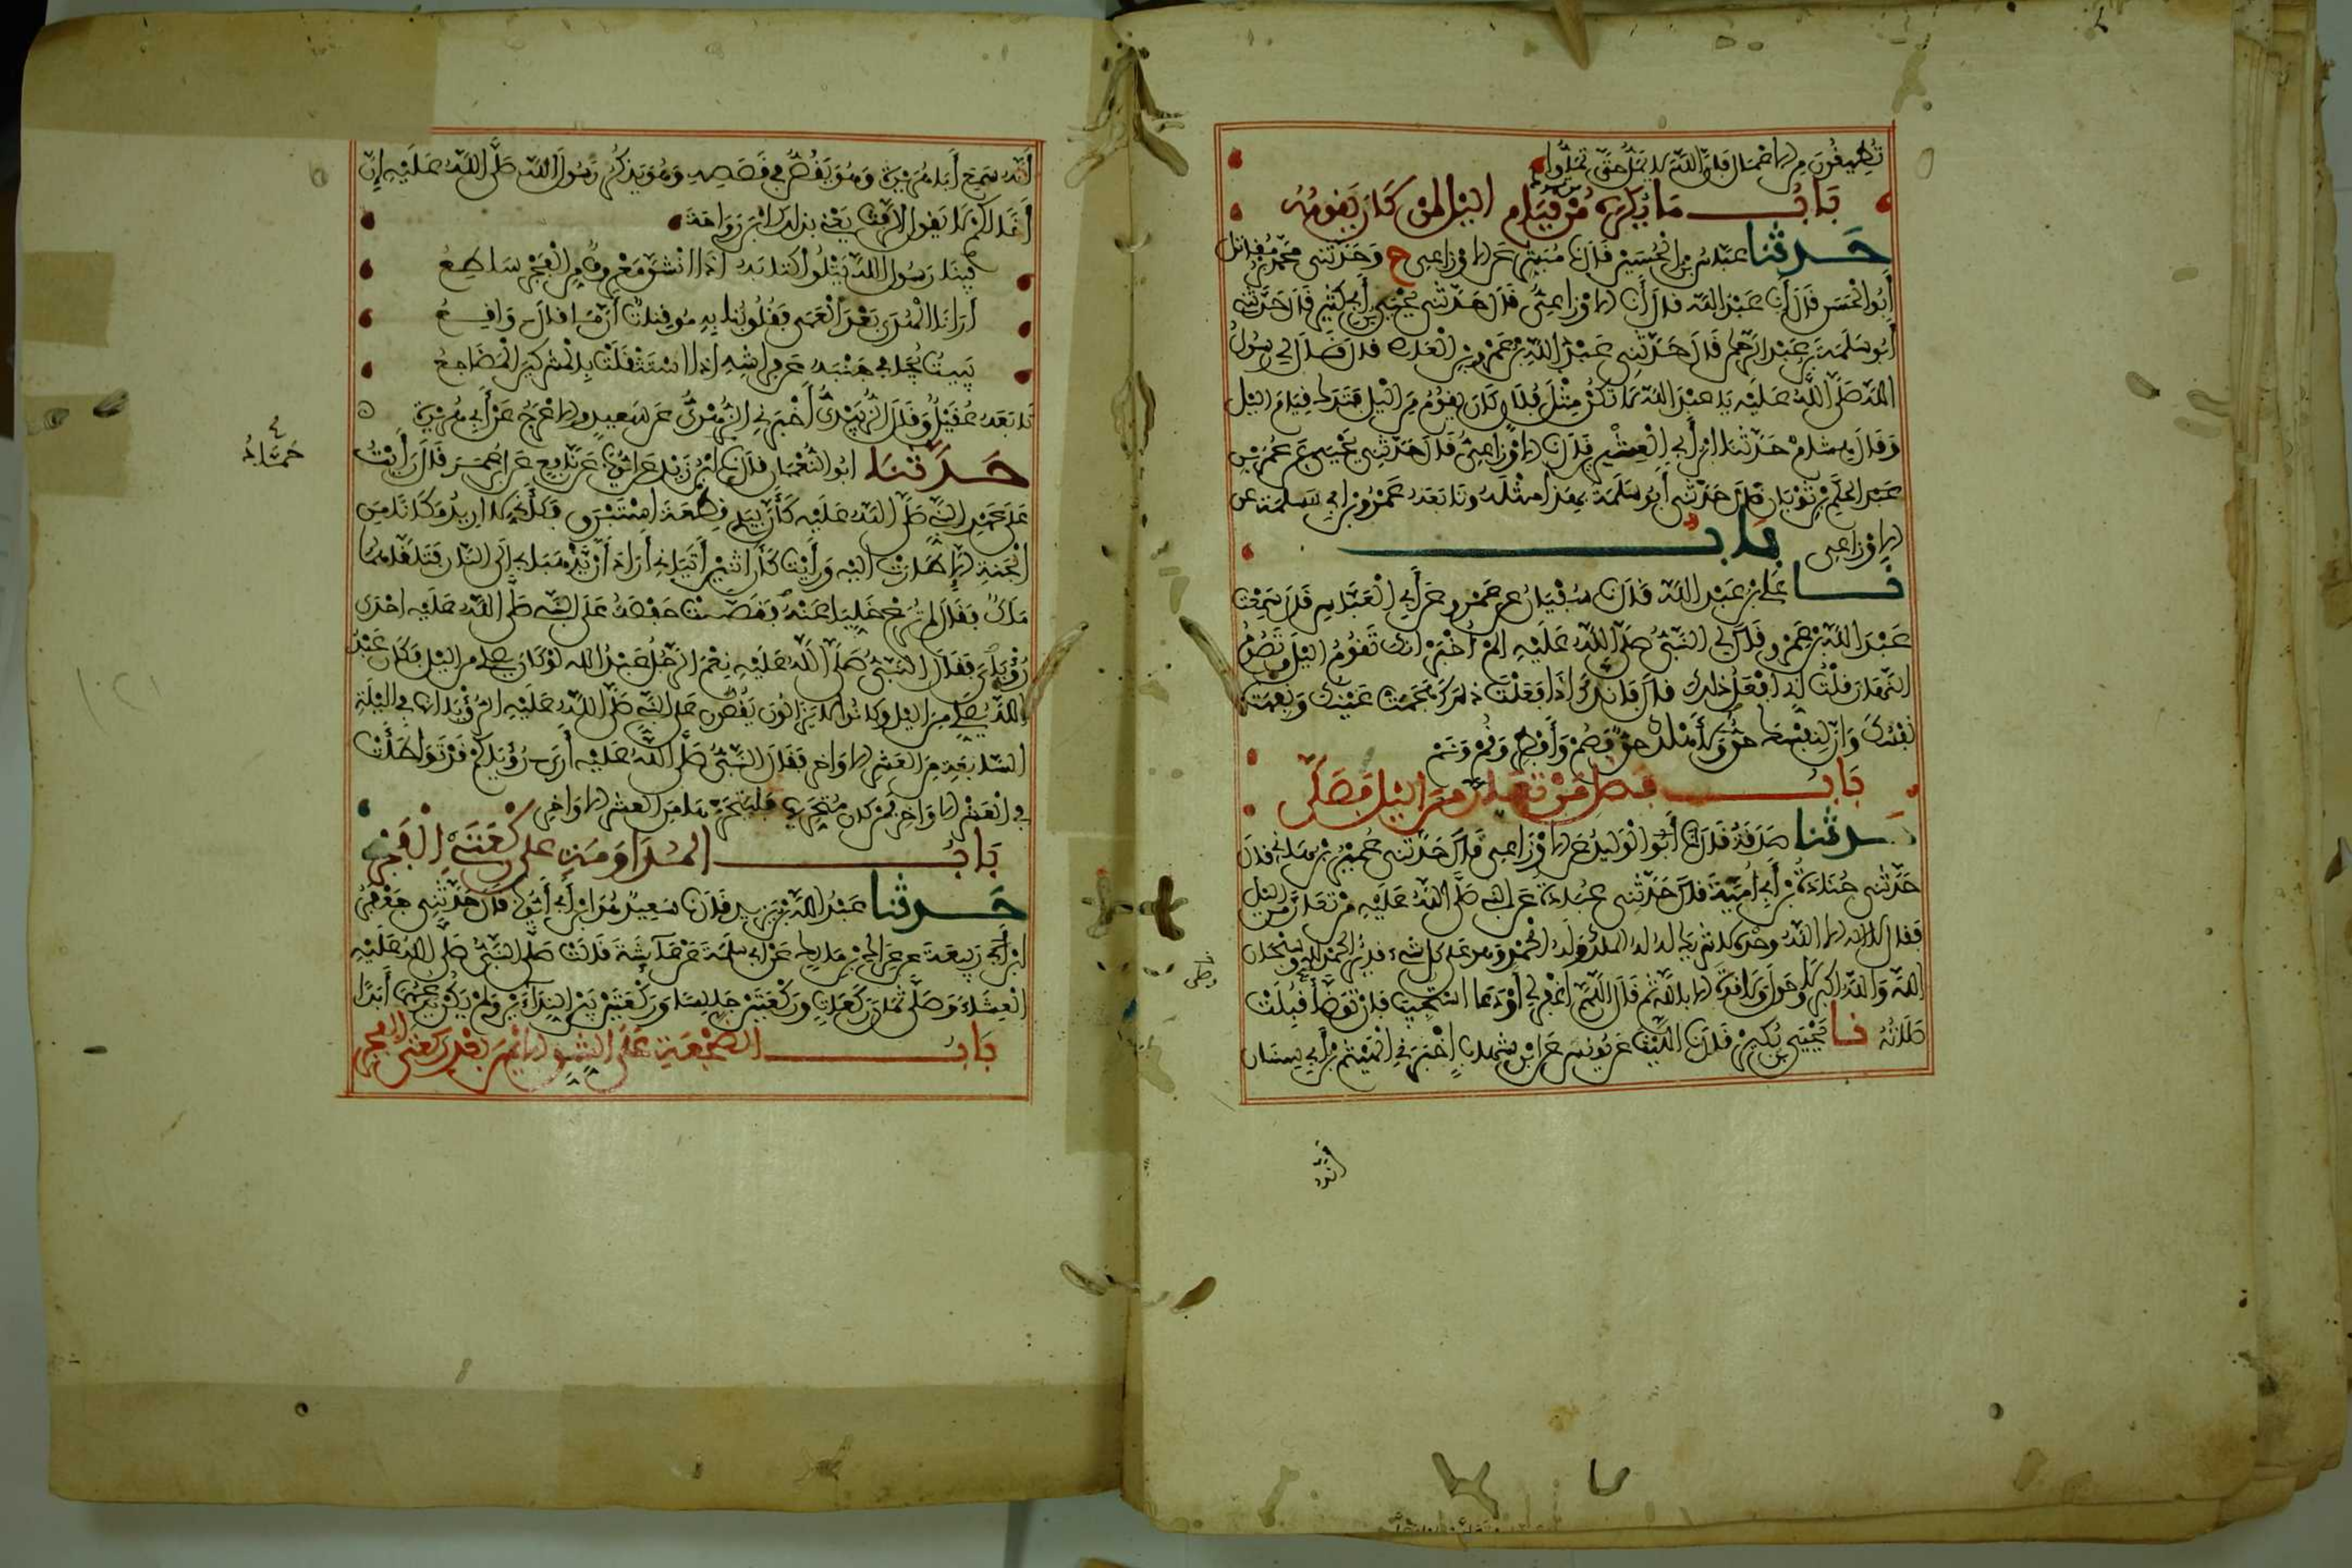 تُطِيقُونَ مِنَ الاعْمَالِ فَإِنَّ اللَّهَ لا يَمَلُّ حَتَّى تَمَلُّوا
بَابُ مَا يُكْرَهُ مِنْ قِيَامِ اليْلِ لمن كَانَ يَقُومُهُ
حَدثنا عَبَّاسُ بن الْحُسَيْنِ قَالَ نا مُبَشِّرٌ عَنِ الاوْزَاعِي ح وَحَدَّثني مُحَمَّدُ بْنُ مُقَاتِل
أَبُو الْحَسَنِ قَالَ أَنا عَبْدُ اللَّه قال أَنا الاوْزَاعِيُّ قَالَ حَدَّثني يَحْيَى بن أَبِي كَثِيرٍ قَالَ حَدَّثني
أَبُو سَلَمَةَ بن عَبْدِ الرَّحْمَنِ قَالَ حَدَّثَنِي عَبْدُ اللَّهِ بْنُ عَمْرِو بن الْعَاصِ قال قَالَ لِي رَسُولُ
اللَّهِ صَلَّى اللَّهُ عَلَيْهِ يَا عَبْدَ اللَّهِ لا تَكُنْ مِثْلَ فُلانٍ كَانَ يَقُومُ مِنَ اليْلِ فَتَرَكَ قِيَامَ اليْل
وَقَالَ هِشَامٌ حَدَّثَنَا ابْنُ أَبِي الْعِشْرِينَ قَالَ نا الاوْزَاعِيُّ قَالَ حَدَّثَنِي يَحْيَى عَنْ عُمَرَ بْنِ
عَبْدِ الحَكَمِ بْنِ ثَوْبَانَ قَالَ حَدَّثَنِي أَبُو سَلَمَةَ بِهَذَا مِثْلَهُ وتَابَعَهُ عَمْرُو بْنُ أبي سَلمة عن
الاوْزَاعِي بَابُ
نا عَلِيُّ بْنُ عَبْدِ اللَّه قَالَ نا سُفْيَانُ عن عَمْرٍو عَنْ أَبِي الْعَبَّاسِ قَالَ سَمِعْتُ
عَبْدَ اللَّهِ بْنَ عَمْرٍو قَالَ لِي النَّبِيُّ صَلَّى اللَّهُ عَلَيْهِ أَلَمْ أُخْبَرْ أنك تَقُومُ اليْلَ وَتَصُومُ
النَّهَارَ قلْتُ إِنِّي أَفْعَلُ ذلك قال فَإِنَّكَ إِذَا فَعَلْتَ ذلك هَجَمَتْ عَيْنُكَ وَنَفِهَتْ
نَفْسُكَ وَإِنَّ لِنَفْسِكَ حقٌّ وَلأَهْلِكَ حقٌّ فَصُمْ وَأَفْطِرْ وَقُمْ وَنَمْ
بَابُ فَضْلِ مَنْ تَعَارَّ مِنَ اليْلِ فَصَلَّى
حدثنا صَدَقَةُ قَالَ أنا أَبُو الْوَلِيدِ عَنِ الاوْزَاعِي قَالَ حَدَّثَنِي عُمَيْرُ بْنُ هَانِئٍ قال
حَدَّثَنِي جُنَادَةُ بْنُ أَبِي أُمَيَّةَ قال حَدَّثَنِي عُبَادَةُ عَنِ النبي صَلَّى اللَّهُ عَلَيْهِ مَنْ تَعَارَّ مِنَ اليْل
فقال لا إله الا اللَّهُ وَحْدَهُ لا شَرِيكَ لَهُ لَهُ الملْكُ وَلَهُ الْحَمْدُ وَهو عَلَى كُلِّ شيء قديرٌ الحمْدُ لله وسبحان
اللَّهِ وَاللَّهُ اكبر وَلا حَوْلَ وَلا قُوَّةَ الا بِاللَّهِ ثُمَّ قَالَ اللَّهُمَّ اغْفِرْ لِي أَوْ دَعَا اسْتُجِيبَ فَإِنْ تَوَضَّأَ قُبِلَتْ
صَلاتُهُ نا يَحْيَى بْنُ بُكَيْرٍ قَالَ نا اللَّيْثُ عَنْ يُونُسَ عَنِ ابْنِ شِهَابٍ أَخْبَرَنِي الْهَيْثَمُ بْنُ أَبِي سِنَان
أَنَّهُ
أَنَّهُ سَمِعَ أَبَا هُرَيْرَةَ وَهُوَ يَقُصُّ فِي قَصَصِهِ وَهُوَ يَذْكُرُ رَسُولَ اللَّه صَلَّى اللَّهُ عَلَيْهِ إِنَّ
أَخًا لَكُمْ لا يَقول الرَّفَثَ يَعْنِي بذلك ابْنَ رَوَاحَةَ
فِينَا رَسُولُ اللَّهِ يَتْلُوا كِتَابَهُ إِذَا انْشَقَّ مَعْرُوفٌ مِنَ الْفَجْرِ سَاطِعُ
أَرَانَا الْهُدَى بَعْدَ الْعَمَى فَقُلُوبُنَا بِهِ مُوقِنَاتٌ أَنَّ مَا قَالَ وَاقِعُ
يَبِيتُ يُجَافِي جَنْبَهُ عَنْ فِرَاشِهِ إِذَا اسْتَثْقَلَتْ بِالْمُشْرِكِينَ الْمَضَاجِعُ
تَابَعَهُ عُقَيْلٌ وَقَالَ الزُّبَيْدِيُّ أَخْبَرَنِي الزُّهْرِيُّ عَنْ سَعِيدٍ وَالاعْرَجِ عَنْ أَبِي هُرَيْرَة
حَدَّثنَا ابُو النُّعْمَانِ قَالَ نا ابْنُ زَيْدٍ عَنْ ايُّوبَ عَنْ نَافِعٍ عَنِ ابن عُمَرَ قَالَ رَأَيْتُ
حَمَّادُ
عَلَى عَهْدِ النَّبِي صَلَّى اللَّهُ عَلَيْهِ كَأَنَّ بِيَدِي قِطْعَةَ اسْتَبْرَقٍ فَكَأَنِّي لا ارِيدُ مَكَانًا مِنَ
الْجَنَّةِ الا طَارَتْ اليْهِ وَرَأَيْتُ كَأَنَّ اثْنَيْنِ أَتَيَانِي أَرَادَا أَنْ يَذْهَبَا بِي إِلَى النَّارِ فَتَلَقَّاهُمَا
مَلَكٌ فَقَالَ لم تُرَعْ خَلِّيَا عَنْهُ فَقَصَّتْ حَفْصَةُ عَلَى النبي صَلَّى اللَّهُ عَلَيْهِ احْدَى
رُؤْيَايَ فَقَالَ النَّبِيُّ صَلَّى اللَّهُ عَلَيْهِ نِعْمَ الرَّجُلُ عَبْدُ الله لَوْ كَانَ يصلي من اليْلِ فَكَانَ عَبْدُ
اللَّهِ يُصَلِّي مِنَ اليْلِ وكانُوا لا يَزَالُونَ يَقُصُّونَ عَلَى النَّبي صَلَّى اللَّهُ عَلَيْهِ الرُّؤْيَا أنها في اليْلَةِ
السَّابِعَةِ مِنَ الْعَشْرِ الاوَاخِرِ فَقَالَ النَّبِيُّ صَلَّى اللَّهُ عَلَيْهِ أَرَى رُؤْيَاكُمْ قَدْ تَوَاطَأَتْ
فِي الْعَشْرِ الاوَاخِرِ فَمَنْ كان مُتَحَرِّيهَا فَلْيَتَحَرَّهَا مِنَ الْعَشْرِ الاوَاخِرِ
بَابُ الْمُدَاوَمَةِ على رَكْعَتَيِ الْفَجْرِ
حَدثنا عَبْدُ اللَّهِ بْنُ يَزِيدَ قَالَ نا سَعِيدٌ هُوَ ابْنُ أَبِي أَيُّوبَ قَالَ حَدَّثَنِي جَعْفَرُ
ابْنُ أَبِي رَبِيعَةَ عن عِرَاكِ بْنِ مَالِكٍ عَنْ أبي سَلَمَةَ عَنْ عَآئِشَةَ قَالَتْ صَلَّى النَّبِيُّ صَلَّى اللَّهُ عَلَيْهِ
الْعِشَاءَ وَصَلَّى ثَمَانَ رَكَعَاتٍ وَرَكْعَتَيْنِ جَالِسًا وَرَكْعَتَيْنِ بَيْنَ النِّدَاءَيْنِ وَلَمْ يَكُنْ يَدَعُهُمَا أَبَدًا
بَابُ الضِّجْعَةِ عَلَى الشِّقِ الايْمَنِ بَعْدَ رَكْعَتَيِ الفجر